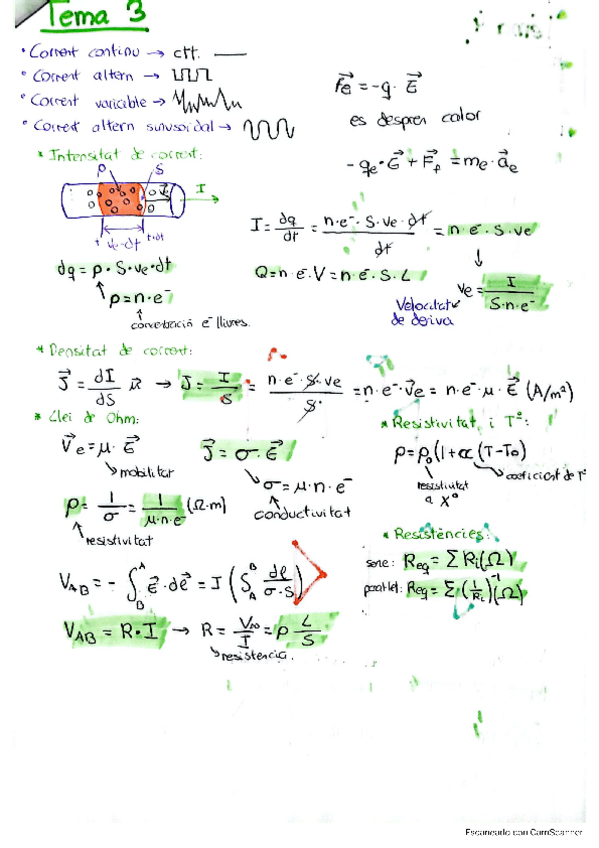 Tema 3
• Corrent continu → ctt.
• Corrent altern →
• Corrent variable →
• Corrent altern sinusoidal →
F⃗e = -q · E⃗
es despren calor
- qe · E⃗ + F⃗f = me · a⃗e
* Intensitat de corrent:
ρ S
I
ve·dt
dq = ρ · S · ve · dt
ρ = n·e⁻
concentració e⁻ lliures.
I = dq/dt = n·e⁻·S·ve·dt/dt = n·e⁻·S·ve
Q = n·e⁻·V = n·e⁻·S·L
ve = I/S·n·e⁻
Velocitat de deriva
* Densitat de corrent:
J⃗ = dI/dS n⃗ → J = I/S = n·e⁻·S·ve/S = n·e⁻·v⃗e = n·e⁻·μ·E⃗ (A/m²)
* Llei de Ohm:
V⃗e = μ · E⃗
mobilitat
J⃗ = σ · E⃗
σ = μ·n·e⁻
conductivitat
ρ = 1/σ = 1/μ·n·e⁻ (Ω·m)
resistivitat
* Resistivitat i Tª:
ρ = ρ₀(1+α(T-T₀)
resistivitat a Xº
coeficient de Tª
* Resistències:
serie: Req = ΣRi(Ω)
paral·lel: Req = Σ(1/Ri)⁻¹(Ω)
V_AB = - ∫_B^A E⃗·dℓ⃗ = I (∫_A^B dℓ/σ·S)
V_AB = R·I → R = V_AB/I = ρ L/S
resistència.
Escaneado con CamScanner